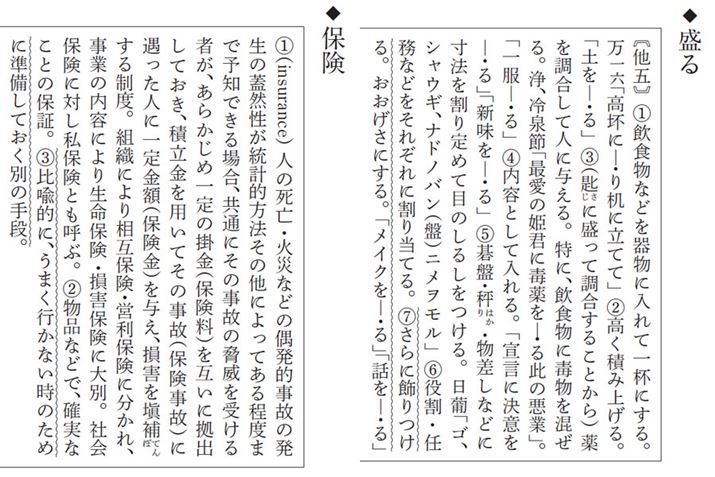 ◆盛る
〘他五〙①飲食物などを器物に入れて一杯にする。
万一六「高坏に―・り机に立てて」②高く積み上げる。
「土を―・る」③(匙さじに盛って調合することから)薬
を調合して人に与える。特に、飲食物に毒物を混ぜ
る。浄、冷泉節「最愛の姫君に毒薬を―る此の悪業」。
「一服―・る」④内容として入れる。「宣言に決意を
―・る」「新味を―・る」⑤碁盤・秤はかり・物差しなどに
寸法を割り定めて目のしるしをつける。日葡「ゴ、
シャウギ、ナドノバン(盤)ニメヲモル」⑥役割・任
務などをそれぞれに割り当てる。⑦さらに飾りつけ
る。おおげさにする。「メイクを―・る」「話を―・る」
◆保険
①(insurance)人の死亡・火災などの偶発的事故の発
生の蓋然性が統計的方法その他によってある程度ま
で予知できる場合、共通にその事故の脅威を受ける
者が、あらかじめ一定の掛金(保険料)を互いに拠出
しておき、積立金を用いてその事故(保険事故)に
遇った人に一定金額(保険金)を与え、損害を塡補てんぽ
する制度。組織により相互保険・営利保険に分かれ、
事業の内容により生命保険・損害保険に大別。社会
保険に対し私保険とも呼ぶ。②物品などで、確実な
ことの保証。③比喩的に、うまく行かない時のため
に準備しておく別の手段。